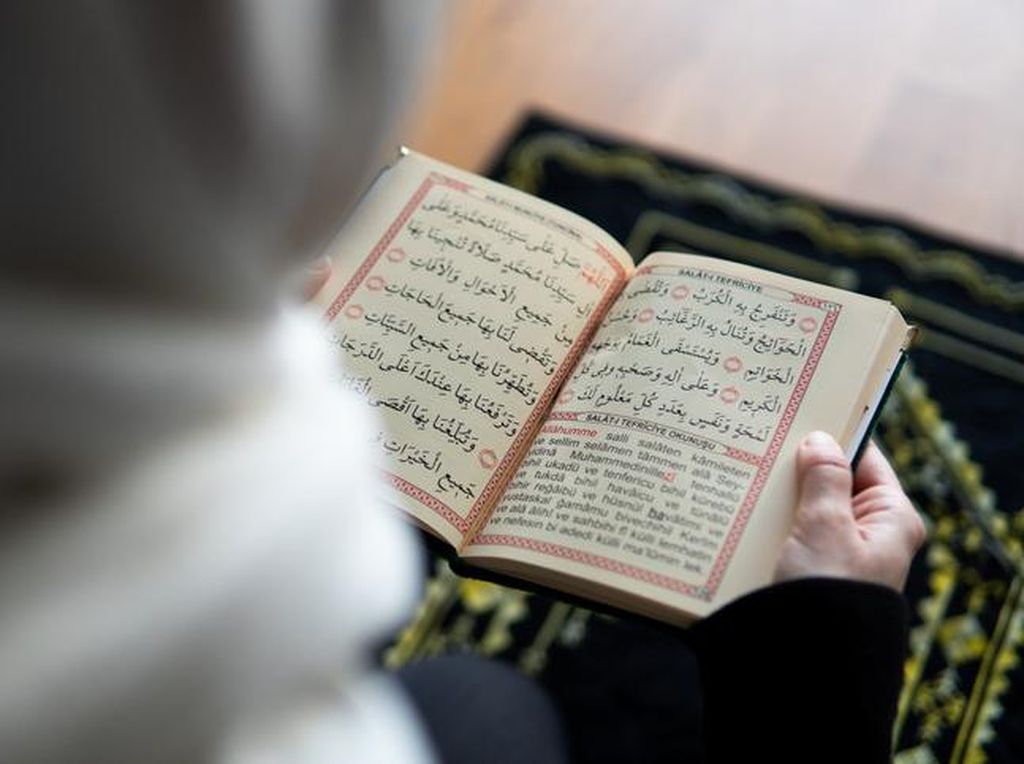 صَلِّ عَلَى سَيِّدِنَا مُحَمَّدٍ وَعَلَى
سَيِّدِنَا مُحَمَّدٍ صَلَاةً تُنْجِينَا بِهَا
مِنْ جَمِيعِ الْاَحْوَالِ وَالْاٰفَاتِ
وَتَقْضِى لَنَا بِهَا جَمِيعَ الْحَاجَاتِ
وَتُطَهِّرُنَا بِهَا مِنْ جَمِيعِ السَّيِّئَاتِ
وَتَرْفَعُنَا بِهَا عِنْدَكَ اَعْلَى الدَّرَجَاتِ
وَتُبَلِّغُنَا بِهَا اَقْصَى
جَمِيعِ الْخَيْرَاتِ فِى
SALÂT-I TEFRİCİYE
وَتَنْفَرِجُ بِهِ الْكُرَبُ وَتُقْضَى
الْحَوَائِجُ وَتُنَالُ بِهِ الرَّغَائِبُ وَحُسْنُ
الْخَوَاتِمِ وَيُسْتَسْقَى الْغَمَامُ بِوَجْهِهِ
الْكَرِيمِ وَعَلَى اٰلِهِ وَصَحْبِهِ فِى كُلِّ
لَمْحَةٍ وَنَفَسٍ بِعَدَدِ كُلِّ مَعْلُومٍ لَكَ
SALÂT-I TEFRİCİYE OKUNUŞU
Allâhumme salli salâten kâmileten
ve sellim selâmen tâmmen alâ Seyyi
dinâ Muhammedinillezî tenhallu
bihil ukadü ve tenfericu bihil kürebu
ve tukdâ bihil havâicu ve tünâlu
bihir reğâibü ve hüsnül havâtimi ve
yustaskal ğamâmu bivechihil Kerîm
ve alâ âlihî ve sahbihî fî külli lemhatin
ve nefesin bi adedi külli ma'lûmin lek.